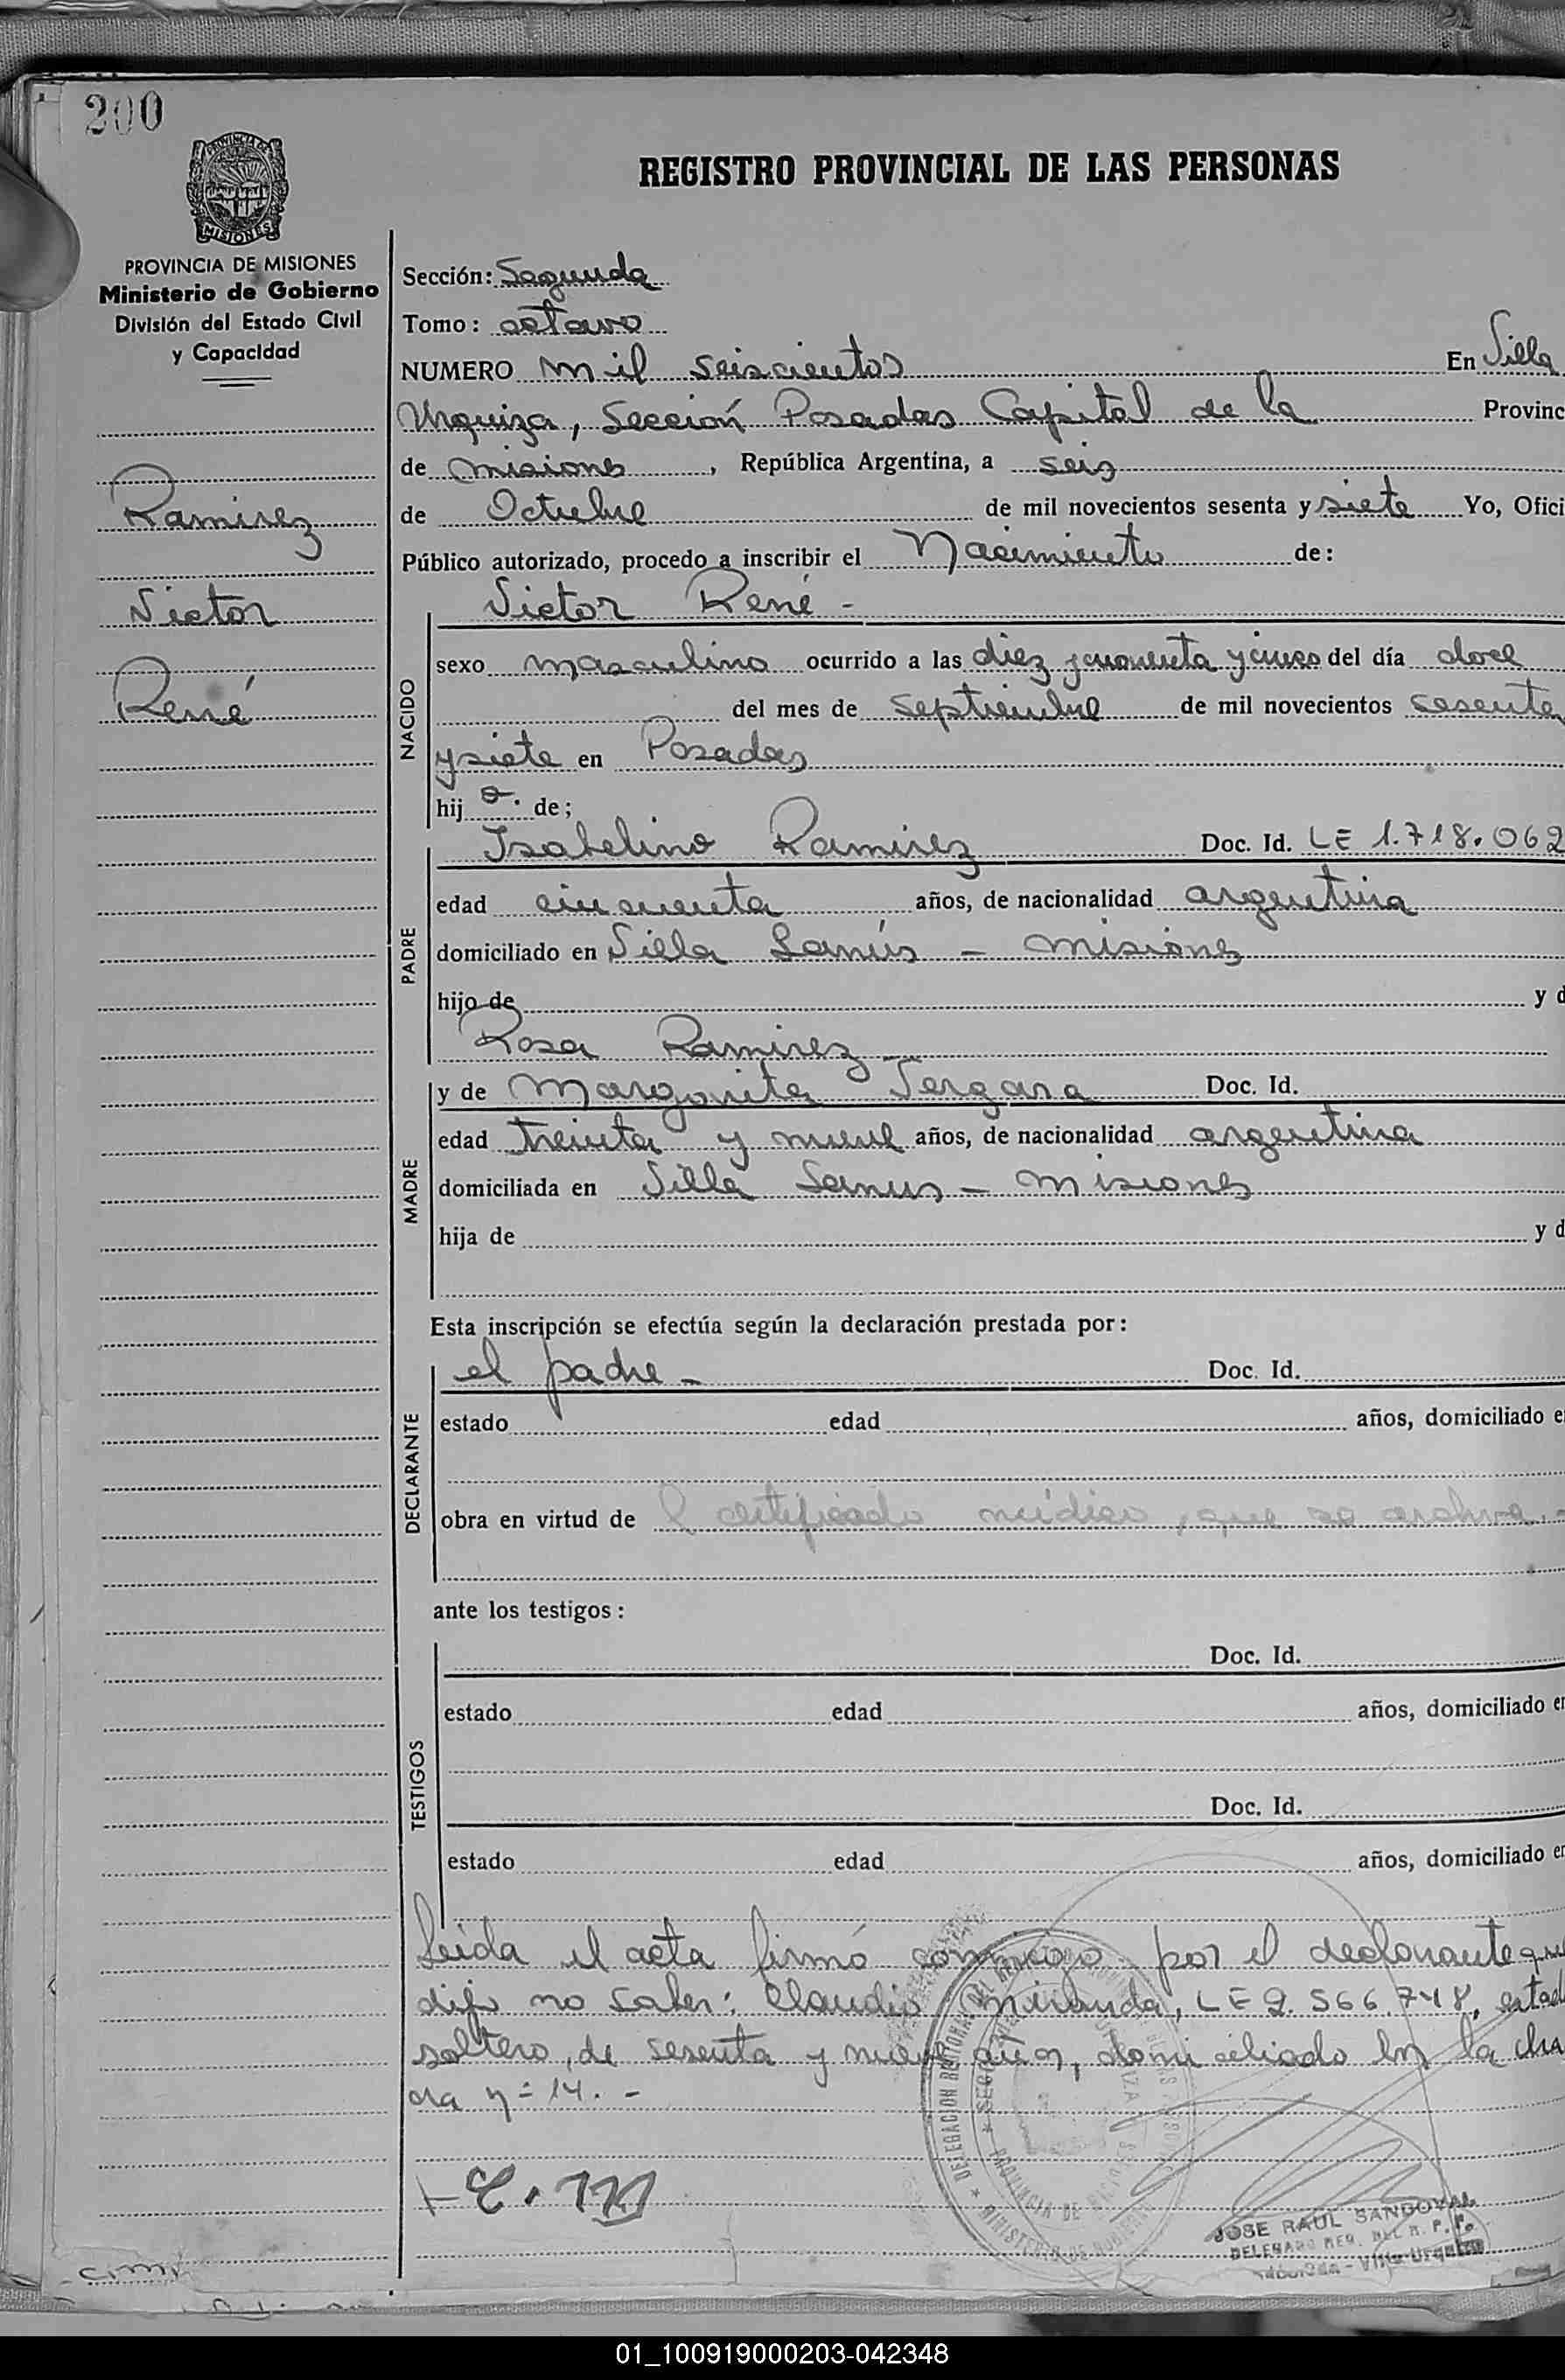 200
REGISTRO PROVINCIAL DE LAS PERSONAS
PROVINCIA DE MISIONES
Ministerio de Gobierno
División del Estado Civil
y Capacidad
Ramirez
Victor
René
Sección: Segunda
Tomo: octavo
NUMERO mil seiscientos En Villa
Urquiza, Sección Posadas Capital de la Provinc
de Misiones, República Argentina, a seis
de Octubre de mil novecientos sesenta y siete Yo, Ofici
Público autorizado, procedo a inscribir el Nacimiento de:
NACIDO
Victor René -
sexo masculino ocurrido a las diez y cuarenta y cinco del día doce
del mes de Septiembre de mil novecientos sesenta
y siete en Posadas
hij o. de;
PADRE
Isabelino Ramirez Doc. Id. LE 1.718.062
edad cincuenta años, de nacionalidad argentina
domiciliado en Villa Lanús - Misiones
hijo de y d
Rosa Ramirez
MADRE
y de Margarita Vergara Doc. Id.
edad treinta y nueve años, de nacionalidad argentina
domiciliada en Villa Lanus - Misiones
hija de y d
Esta inscripción se efectúa según la declaración prestada por:
DECLARANTE
el padre - Doc. Id.
estado edad años, domiciliado e
obra en virtud de l certificado médico, que se archiva. -
ante los testigos:
TESTIGOS
Doc. Id.
estado edad años, domiciliado en
Doc. Id.
estado edad años, domiciliado en
Leida el acta firmó conmigo por el declarante que
dijo no saber: Claudio Miranda, LE 2.566.748, estad
soltero, de sesenta y nueve años, domiciliado en la cha
cra nº 14. -
C. M
JOSE RAUL SANDOVAL
DELEGADO REG. DEL R. P. P.
Villa Urquiza
01_100919000203-042348